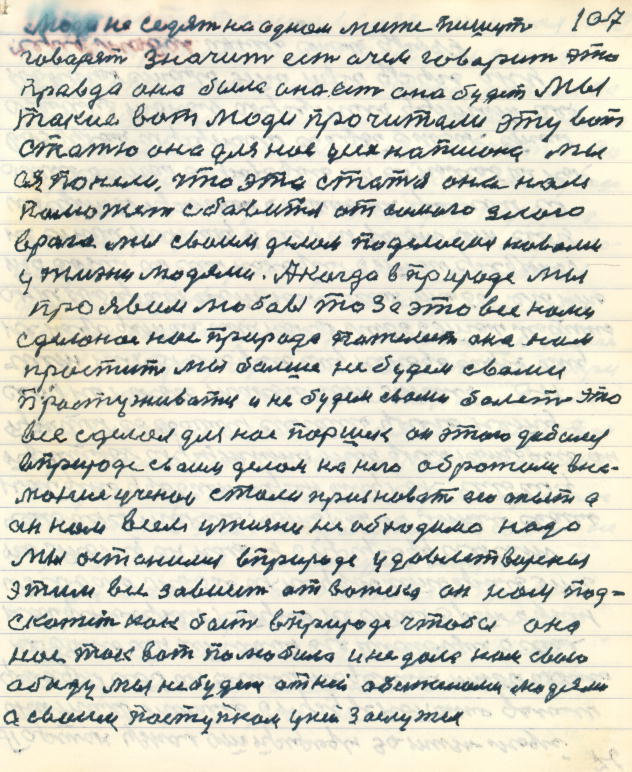 107
Люди не седят на одном месте пишут
говорят значит ест о чем говорит это
правда она была она ест она будет Мы
такие вот люди прочитали эту вот
статю она для нас уже написона мы
ее поняли, что эта статя она нам
поможет избавится от самого злого
врага мы своим делом поделимся новыми
у жизни людями. А когда в природе мы
проявим любов то за это все нами
сделоное нас природа пажилеет она нам
простит мы болше не будем своими
простуживатся и не будем своми болет это
все сделол для нас поршик он этого добился
в природе своим делом на него обротили вни-
мание ученои стали призноват его опыт а
он нам всем у жизни необходимо надо
мы останимся в природе удовлетворены
этим все зависит от вожека он нам под-
скажит как быт в природе чтобы она
нас так вот полюбила и не дала нам свою
абиду мы не будем от ней обежаными людями
а своим поступком у ней заслужем